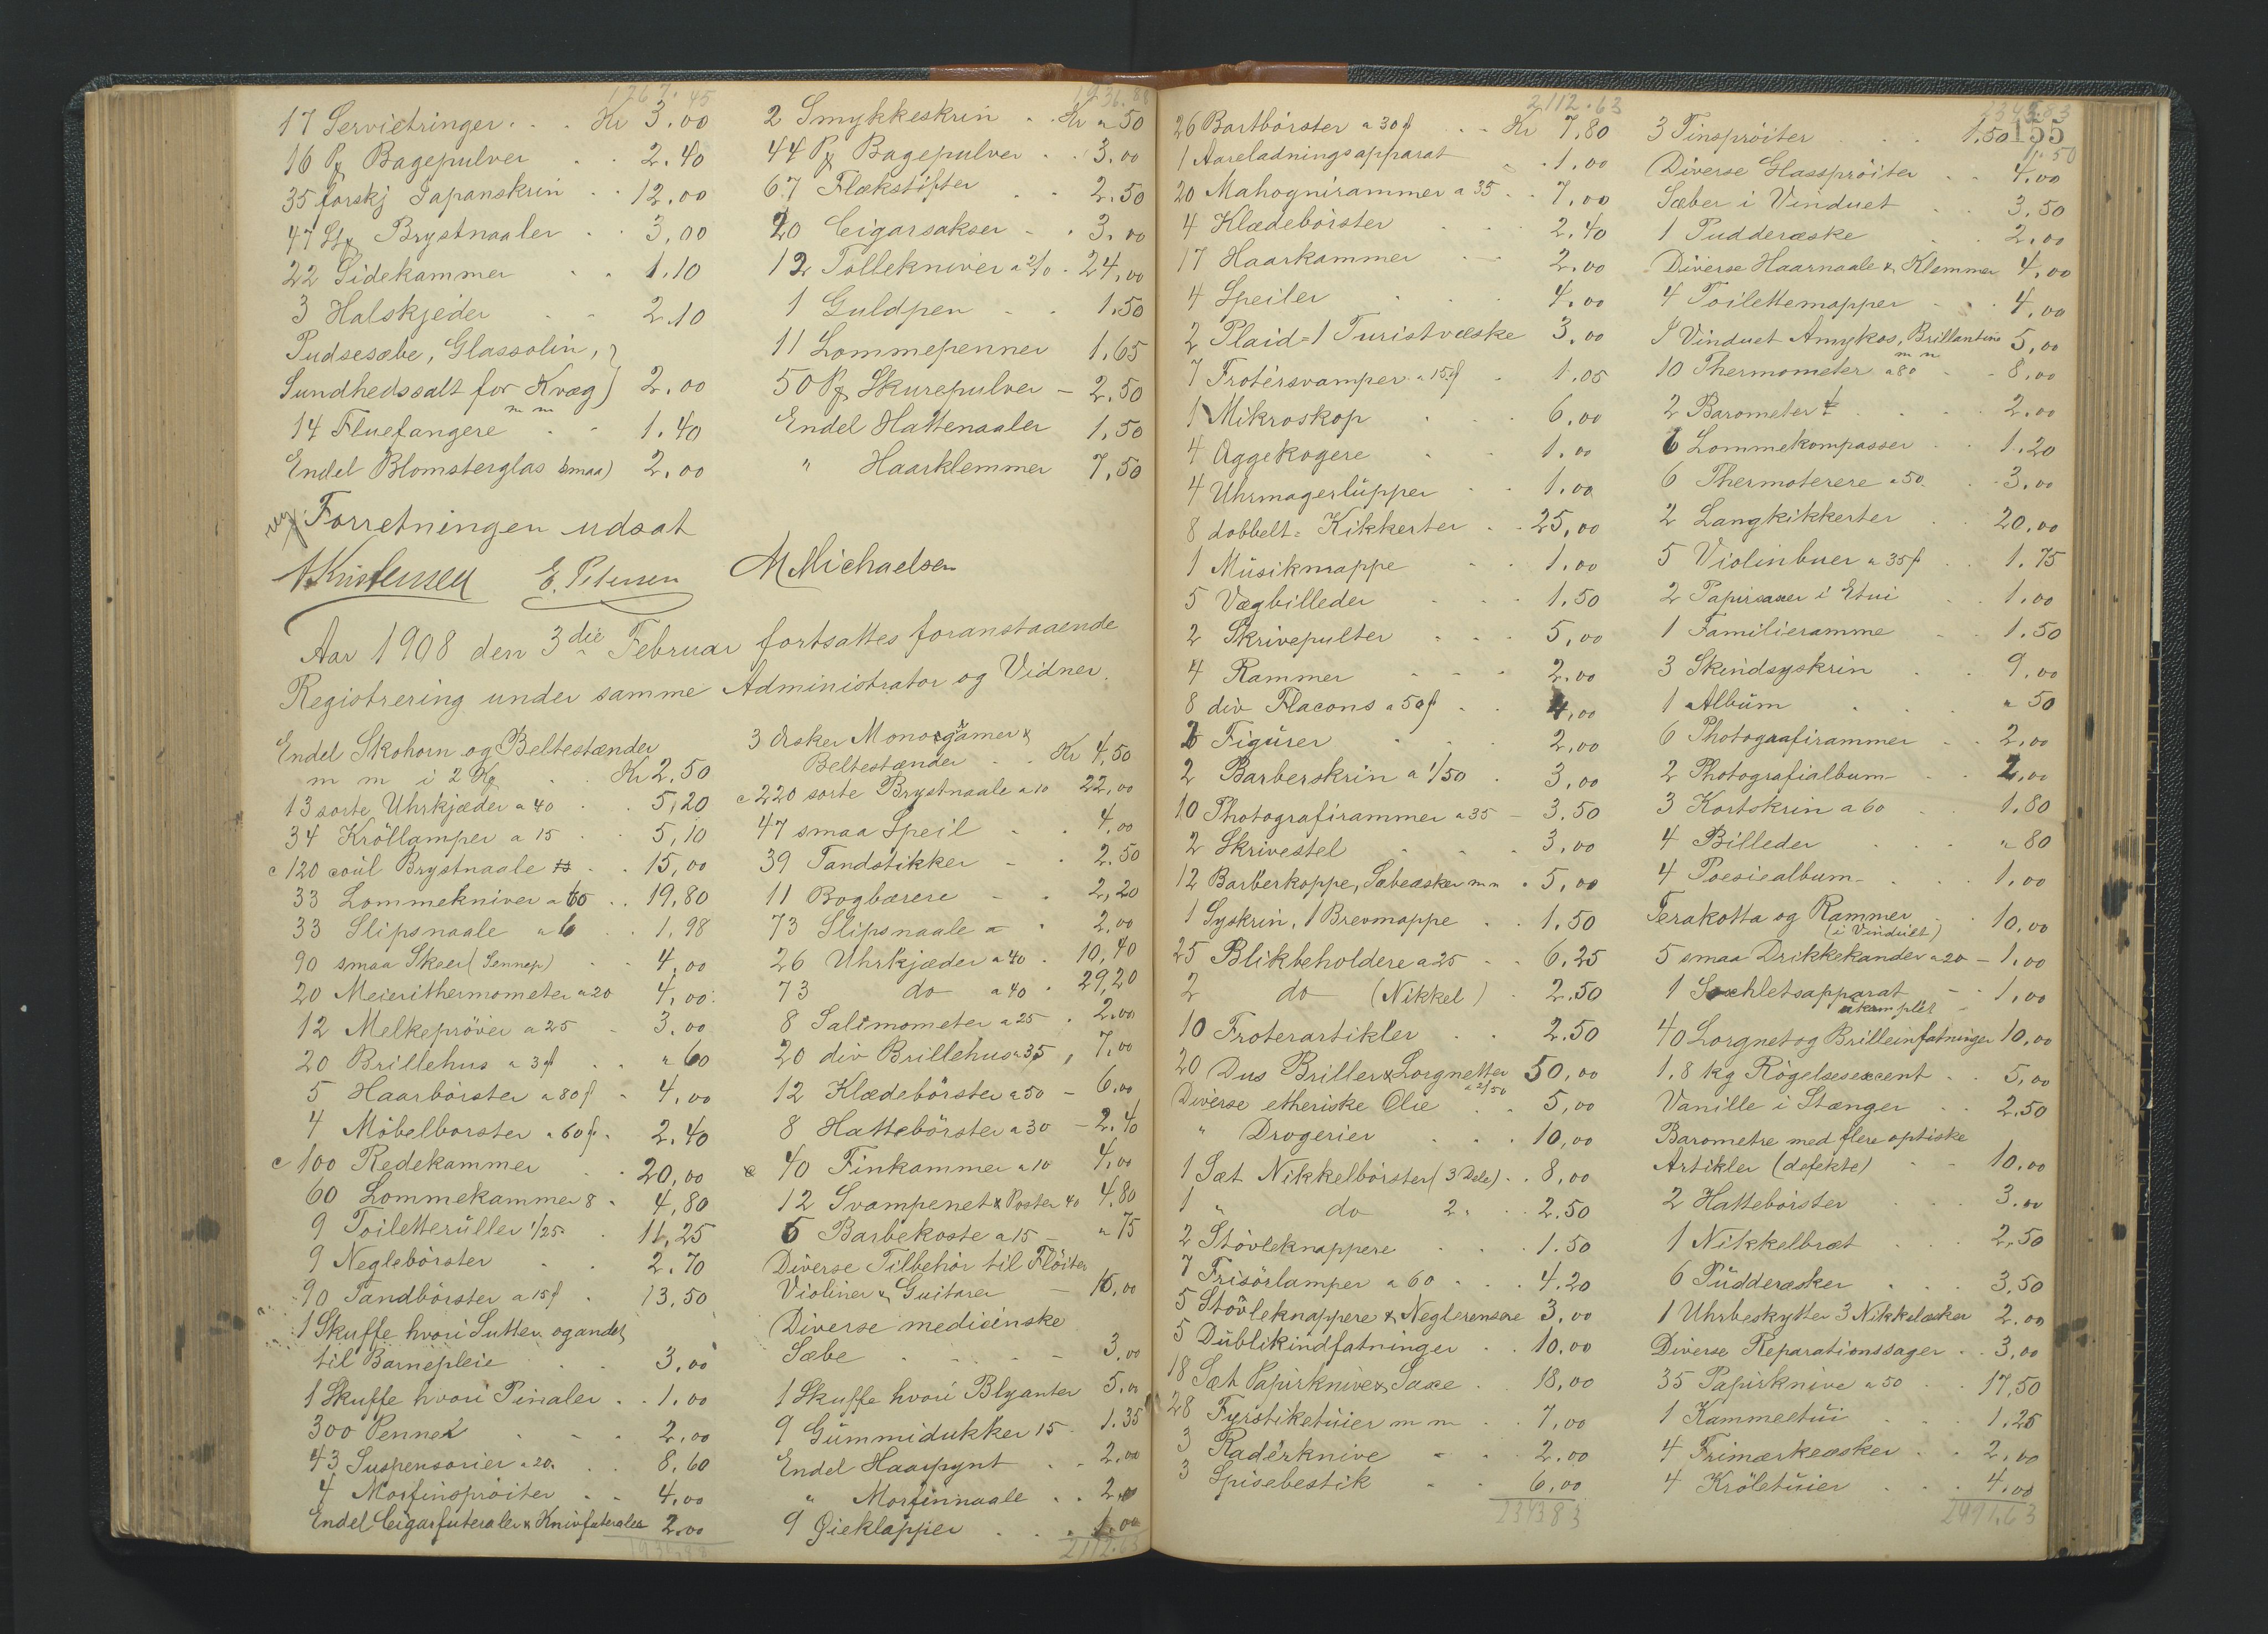 1267.45
17 Servietringer . . . Kr 3.00
16 Pk Bagepulver . . 2.40
35 forskj Japanskrin . . 12.00
47 Stk Brystnaaler . . 3,00
22 Sidekammer . . 1.10
3 Halskjeder . . 2.10
Pudsesæbe, Glassolin,
Sundhedssalt for Kvæg) 2.00
m m
14 Fluefangere . . 1.40
Endel Blomsterglas (smaa) 2.00
1936.88
2 Smykkeskrin . . Kr " 50
44 Pk Bagepulver . . 3.00
67 Flækstifter . . 2.50
20 Cigarsakser . . 3.00
12 Tollekniver a 2/0 . 24,00
1 Guldpen . . 1.50
11 Lommepenner 1.65
50 Pk Skurepulver - 2.50
Endel Hattenaaler 1,50
" Haarklemmer 7,50
Forretningen udsat
A Kristensen E. Petersen M Michaelsen
Aar 1908 den 3die Februar fortsattes foranstaaende
Registrering under samme Administrator og Vidner.
Endel Skohorn og Beltestænder
m m i 2 Kg . Kr 2.50
13 sorte Uhrkjæder a 40 . . 5,20
34 Kröllamper a 15 . . 5,10
c 120 coul Brystnaale . . 15,00
33 Lommekniver a 60 . . 19,80
33 Slipsnaale a 6 . . 1,98
90 smaa Skeer (Sennep) . . 4,00
20 Meierithermometer a 20 4,00
12 Melkepröver a 25 - 3.00
20 Brillehus a 3 . . " 60
5 Haarbörster a 80 - 4,00
4 Möbelborster a 60 . 2.40
c 100 Redekammer . . 20,00
60 Lommekammer 8 . 4,80
9 Toiletteruller 1/25 . 11,25
9 Neglebörster . . 2.70
90 Tandbörster a 15 . 13,50
1 Skuffe hvori Sutter og andet
til Barnepleie . . 3,00
1 Skuffe hvori Pinaler . . 1.00
300 Penner . . . 2.00
43 Suspensorier a 20 . . 8,60
4 Morfinspröiter . . 4,00
Endel Cigarfuteraler & Knivfuteraler 2.00
1936.88
3 Æsker Monogramer &
Beltestænder . . Kr 4,50
c 220 sorte Brystnaale a 10 22,00
47 smaa Speil . . 4,00
39 Tandstikker - . 2.50
11 Bogbærere - . 2,20
73 Slipsnaale a . 2,00
26 Uhrkjæder a 40 . 10,40
73 do a 40 . 29,20
8 Salimometer a 25 . 2.00
20 div Brillehus a 35 , 7,00
12 Klædebörster a 50 - 6.00
8 Hattebörster a 30 - 2.40
c 40 Finkammer a 10 4,00
12 Svampenet & Poster 40 4.80
5 Barbekoste a 15 - " 75
Diverse Tilbehör til Flöiter
Violiner & Guitarer - 10,00
Diverse medicinske
Sæbe . - - - - 3,00
1 Skuffe hvori Blyanter 5,00
9 Gummidukker 15 . 1.35
Endel Haarpynt . . 2,00
" Morfinnaale . . 2,00
9 Øieklapper . . . 1.00
2112.63
2112.63
26 Bartbörster a 30 . . Kr 7,80
1 Aareladningsapparat . . 1.00
20 Mahognirammer a 35 . . 7,00
4 Klædebörster . . . 2.40
17 Haarkammer . - 2,00
4 Speiler . . . 4.00
2 Plaid = 1 Turistvæske 3.00
7 Frotérsvamper a 15 . 1.05
1 Mikroskop . . 6.00
4 Æggekogere . . 1.00
4 Uhrmagerlupper . . 1.00
8 dobbelt = Kikkerter . . 25,00
1 Musikmappe . . 1.00
5 Vægbilleder . . . 1.50
2 Skrivepulter . . . 5,00
4 Rammer . . . 2.00
8 div Flacons a 50 . . 4,00
2 Figurer . . 2,00
2 Barberskrin a 1/50 . 3,00
10 Photografirammer a 35 - 3.50
2 Skrivestel . . . 3,00
12 Barberkoppe, Sæbeæsker m m . 5,00
1 Syskrin, 1 Brevmappe . . 1.50
25 Blikbeholdere a 25 . . 6.25
2 do (Nikkel) . 2.50
10 Froterartikler . . 2.50
20 Dus Briller & Lorgnetter 50,00
a 2/50
Diverse etheriske Olie . . 5,00
" Drogerier . . . 10,00
1 Sæt Nikkelbörster (3 Dele) . . 8,00
1 " do 2 " . . 2.50
2 Stövleknappere . . . 1.50
7 Frisörlamper a 60 . . . 4.20
5 Stövleknappere & Neglerensere 3,00
5 Dublikindfatninger . . 10.00
18 Sæt Papirknive & Saxe . 18,00
28 Fyrstiketuier m m . . 7,00
3 Radérknive - . 2.00
3 Spisebestik - . 6,00
2343.83
2343.83
155
3 Tinspröiter . . . 1,50
1.50
Diverse Glasspröiter . . 4,00
Sæber i Vinduet . . 3.50
1 Pudderæske . . 2,00
Diverse Haarnaale & Klemmer 4,00
4 Toilettemapper . . . 4,00
I Vinduet Amykos, Brillantine 5,00
m m
10 Thermometer a 80 - . 8,00
2 Barometer . . . . 2.00
6 Lommekompasser . . 1.20
6 Thermoterere a 50 . . 3.00
2 Langkikkerter . . 20,00
5 Violinbuer a 35 . . 1.75
2 Papirsaxer i Etui . . 1.00
1 Familieramme . . 1.50
3 Skindsyskrin . . 9.00
1 Album . . . " 50
6 Photografirammer . . 2.00
2 Photografialbum . . 2,00
3 Kortskrin a 60 . . 1.80
4 Billeder . . . " 80
4 Poesiealbum . . . 1.00
Terakotta og Rammer . . 10,00
(i Vinduet)
5 smaa Drikkekander a 20 - 1,00
1 Soxhletsapparat . - 1,00
ukomplet -
40 Lorgnet og Brilleinfatninger 10,00
1.8 kg Rögelsesessent . . 5,00
Vanille i Stænger . . 2.50
Barometre med flere optiske
Artikler (defekte) . . 10.00
2 Hattebörster . . . 3.00
1 Nikkelbræt . . . 2.50
6 Pudderæsker . . . 3,50
1 Uhrbeskytter 3 Nikkelæsker 2.00
Diverse Reparationssager . . 3,00
35 Papirknive a 50 . . 17,50
1 Kammeetui . . . 1.25
4 Frimærkeæsker . . 2,00
4 Kröletuier . . . 4.00
2491.63